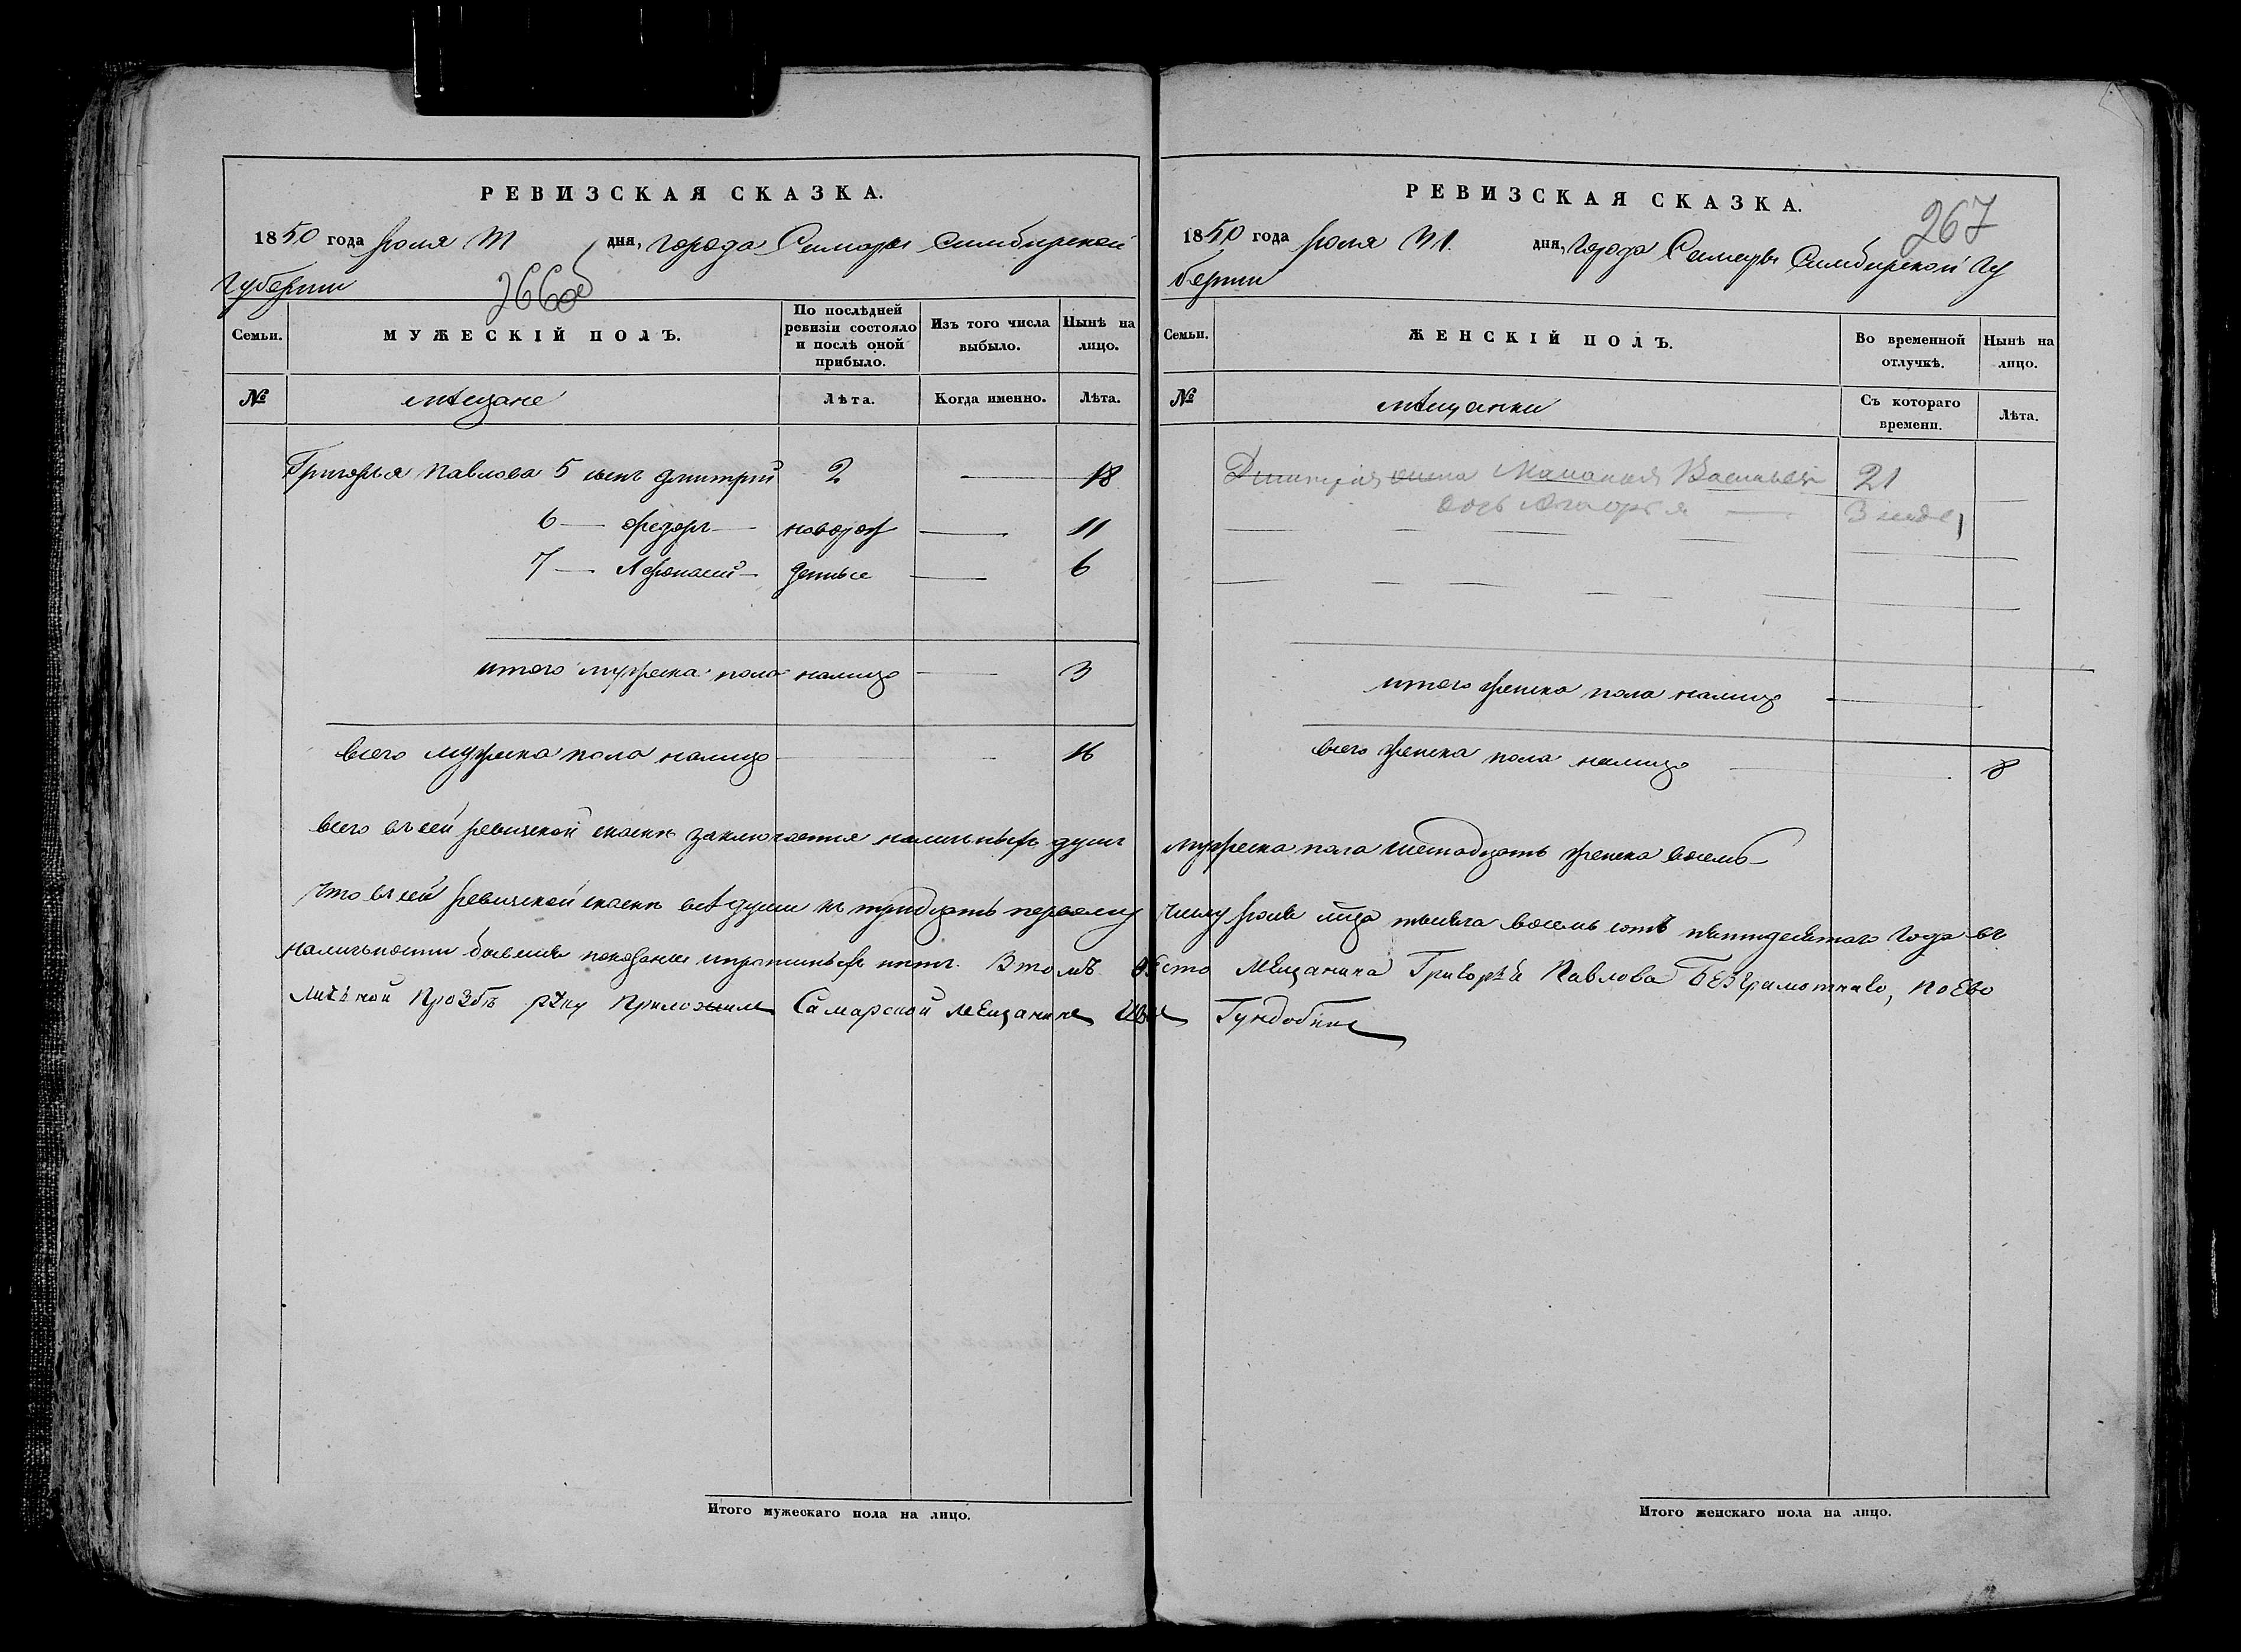 РЕВИЗСКАЯ СКАЗКА.
1850 года Июля 31 дня, города Самары Симбирской
Губернии
266об
Семьи.
МУЖЕСКІЙ ПОЛЪ.
По послѣдней ревизіи состояло и послѣ оной прибыло.
Изъ того числа выбыло.
Нынѣ на лицо.
№
мѣщане
Лѣта.
Когда именно.
Лѣта.
Григорья Павлова 5 сынъ Дмитрий 2 — 18
6 — Федоръ — новорож — 11
7 — Афонасий — 6
итого мужеска пола налицо — 3
всего мужеска пола налицо — 16
РЕВИЗСКАЯ СКАЗКА.
267
1850 года Июля 31. дня, города Самары Симбирской Гу
бернии
Семьи.
ЖЕНСКІЙ ПОЛЪ.
Во временной отлучкѣ.
Нынѣ на лицо.
№
мѣщанки
Съ котораго времени.
Лѣта.
Дмитрия жена Васильева 21
дочь
итого женска пола налицо —
всего женска пола налицо — 8
всего въ сей ревизской сказки заключается наличныхъ душъ мужеска пола шестнадцать женска восемь
Что въ сей ревизской сказки всѣ души къ тридцать первому числу Июля тысяча восемь сотъ пятидесятаго года въ
наличности бывшия показаны и нѣтъ. Втомъ мѣсто мѣщанина Григорья Павлова Безграмотнаво, по Ево
личной прозбѣ рѣку приложилъ Самарской мѣщанинъ Гундобинъ
Итого мужескаго пола на лицо.
Итого женскаго пола на лицо.